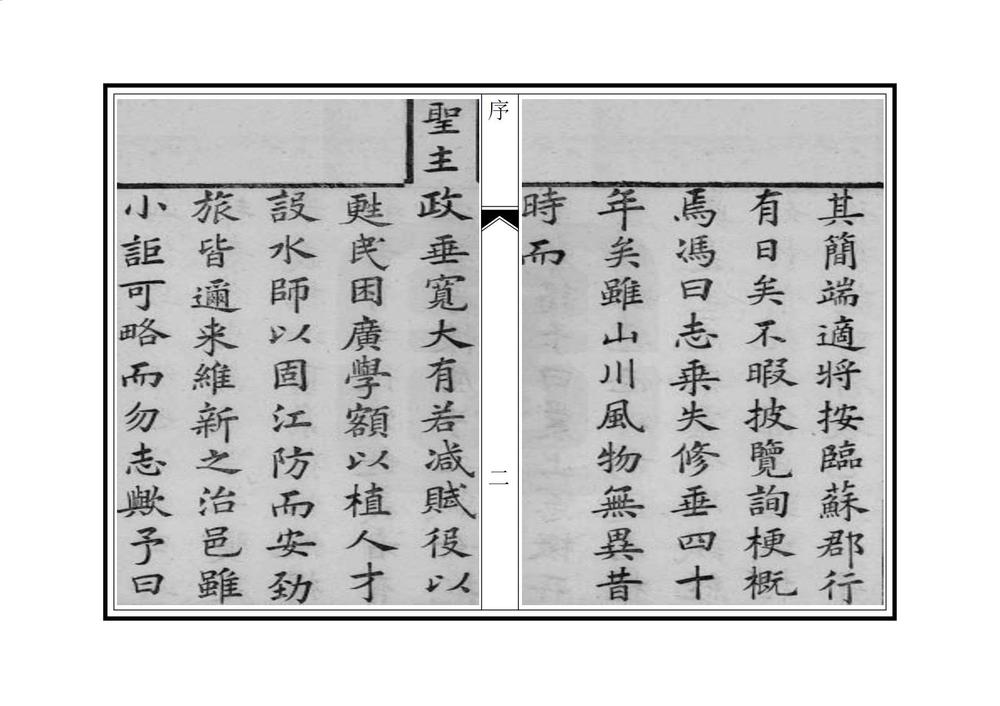 其簡端適將按臨蘇郡行
有日矣不暇披覽詢梗概
焉馮曰志乗失修垂四十
年矣雖山川風物無異昔
時而
序
二
聖主政垂寬大有若减賦役以
甦民困廣學額以植人才
設水師以固江防而安勁
旅皆邇来維新之治邑雖
小詎可略而勿志歟予曰